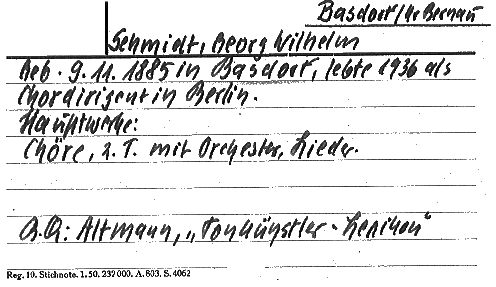 Basdorf/Kr Bernau
Schmidt, Georg Wilhelm
Geb. 9.11.1885 in Basdorf, lebte 1936 als
Chordirigent in Berlin.
Hauptwerke:
Chöre, z.T. mit Orchester, Lieder.
Q.Q: Altmann, „Tonkünstler-Lexikon"
Reg. 10. Stichnote. 1. 50. 232000. A. 803. S. 4062